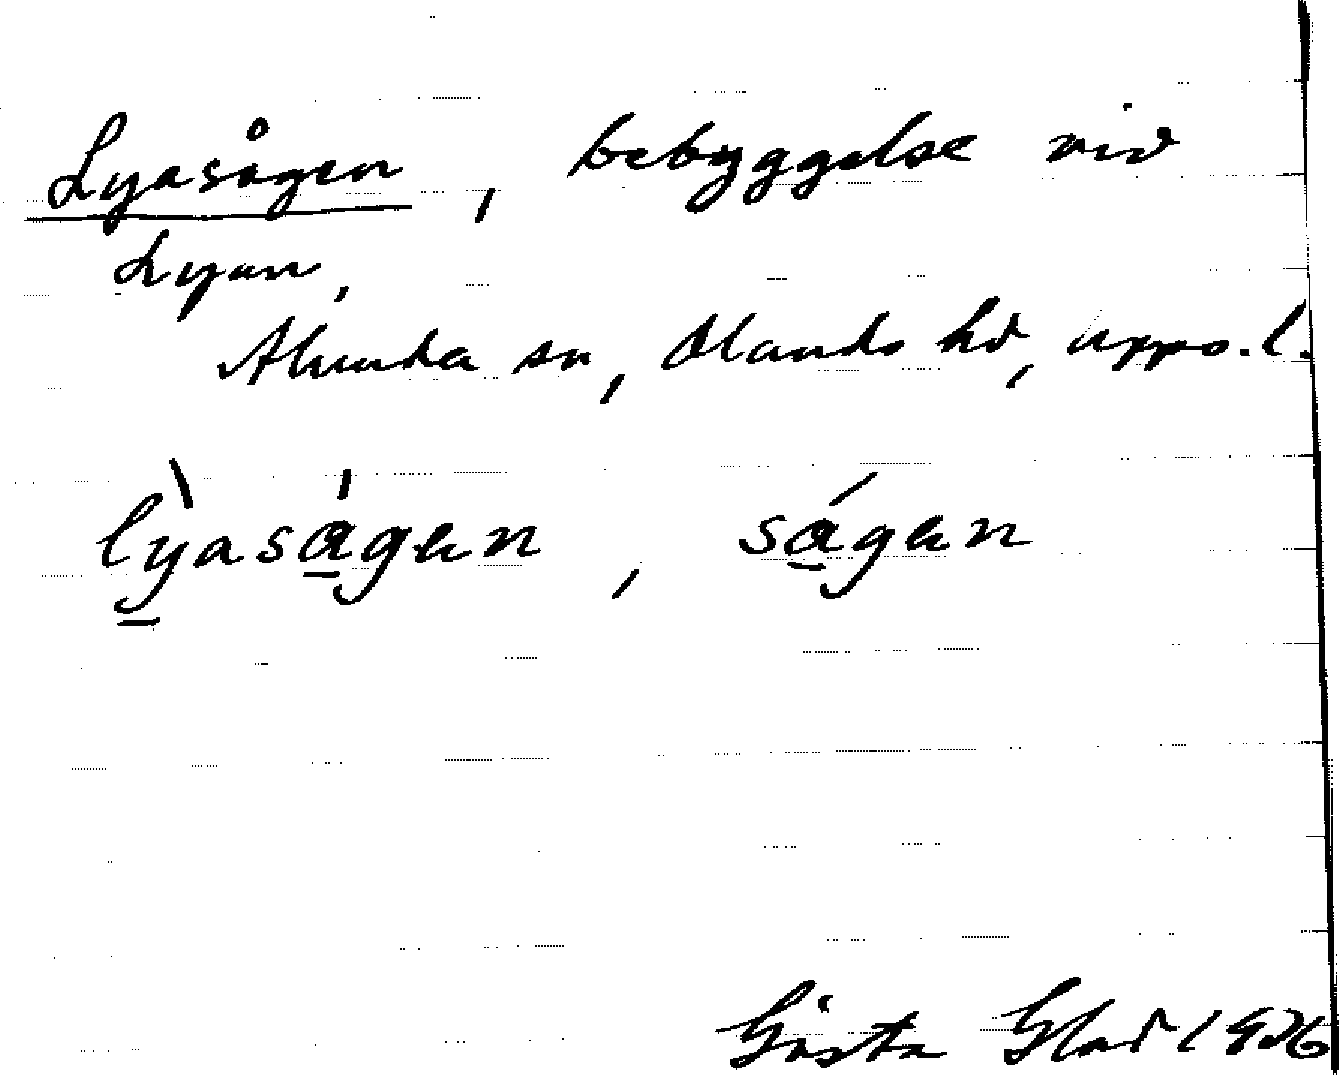 Lyasågen, bebyggelse vid
Lyan,
Alunda sn, Olands hd, Upps. l.
lỳaságen, ságen
Gösta Glad 1926